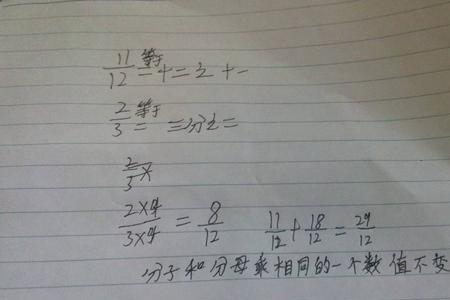 11/12 等于 = 十二之十一
2/3 等于 = 三分之二
2/3 ×
2×4/3×4 = 8/12 11/12 + 18/12 = 29/12
分子和分母乘相同的一个数 值不变